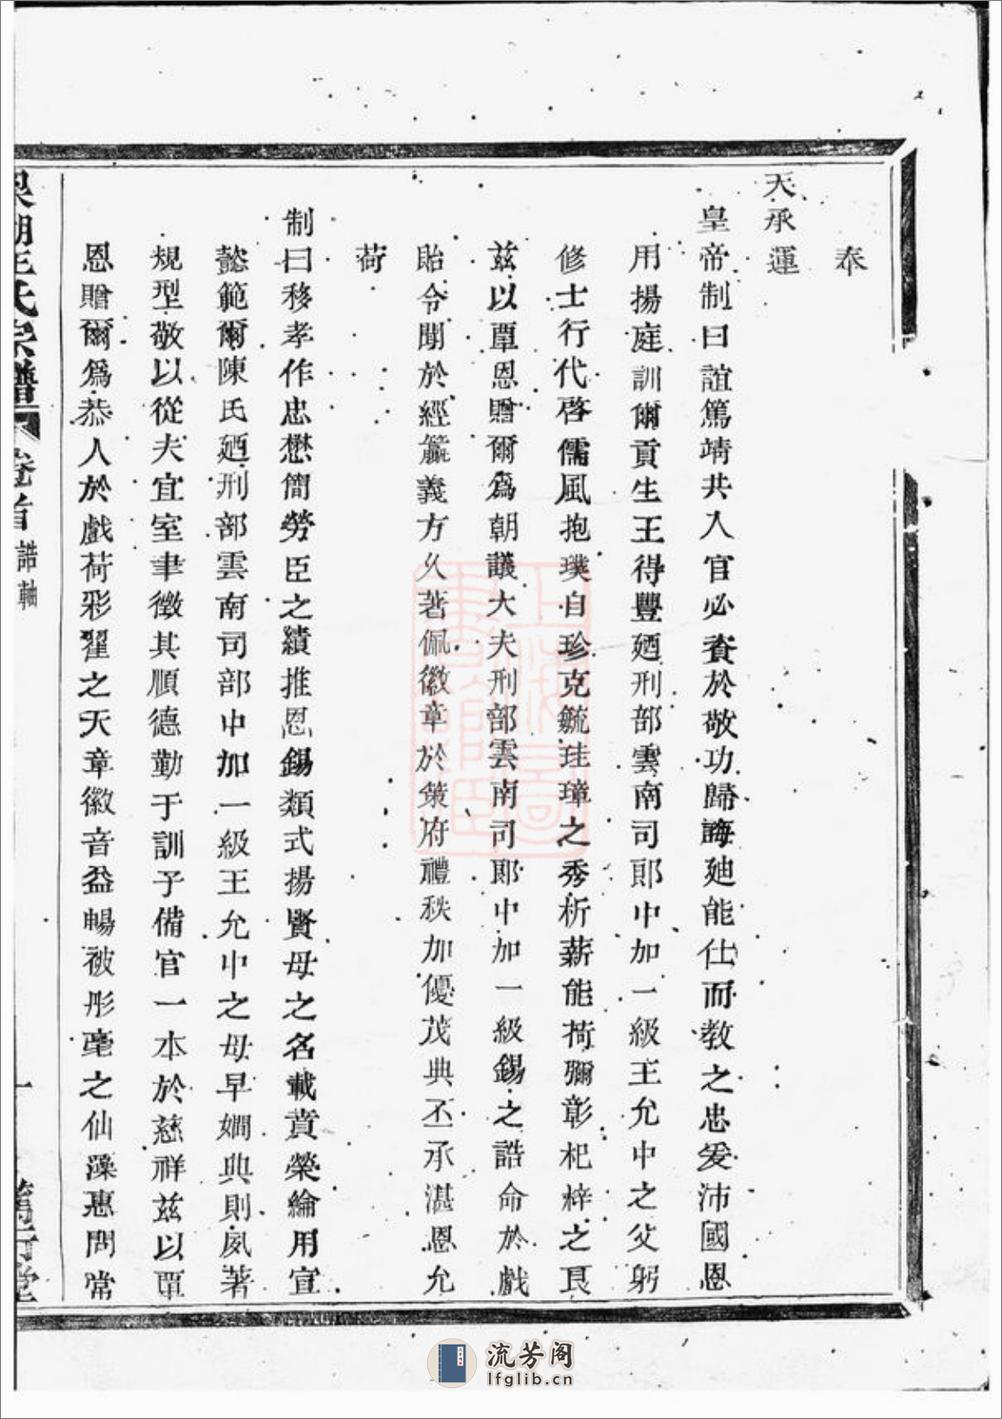 奉
天承運
皇帝制曰誼篤靖共入官必資於敬功歸誨廸能仕而教之忠爰沛國恩
用揚庭訓爾貢生王得豐廼刑部雲南司郎中加一級王允中之父躬
修士行代啓儒風抱璞自珍克毓珪璋之秀析薪能荷彌彰杞梓之良
兹以覃恩贈爾爲朝議大夫刑部雲南司郎中加一級錫之誥命於戲
貽令聞於經籯義方久著佩徽章於策府禮秩加優茂典丕承湛恩允
荷
制曰移孝作忠懋簡勞臣之績推恩錫類式揚賢母之名載賁榮綸用宣
懿範爾陳氏廼刑部雲南司部中加一級王允中之母早嫺典則夙著
規型敬以從夫宜室聿徵其順德勤于訓子備官一本於慈祥兹以覃
恩贈爾爲恭人於戲荷彩翟之天章徽音益暢被彤毫之仙藻惠問常
王氏宗譜 卷首 誥軸 一
流芳阁
lfglib.cn